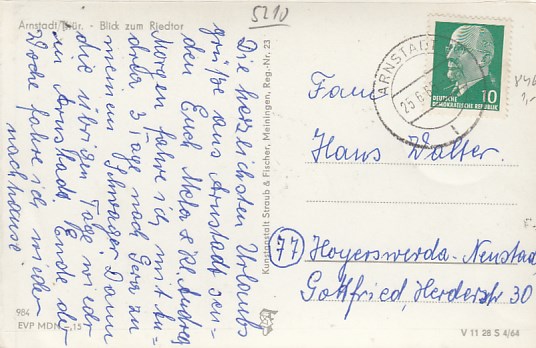 5210
Arnstadt/Thür. - Blick zum Riedtor
Die herzlichsten Urlaubs
grüße aus Arnstadt sen-
den Euch Meta & Kl. Andrea
Morgen fahre ich mit An-
drea 3 Tage nach Gera zu
meinem Schwager. Dann
die übrigen Tage wieder
in Arnstadt. Ende der
Woche fahre ich wieder
nachhause.
Kunstanstalt Straub & Fischer, Meiningen, Reg.-Nr. 23
ARNSTADT
25.6.
DEUTSCHE
DEMOKRATISCHE REPUBLIK
10
1,-
Fam
Hans Walter.
77 Hoyerswerda-Neustadt
Gottfried, Herderstr 30
984
EVP MDN -,15
V 11 28 S 4/64